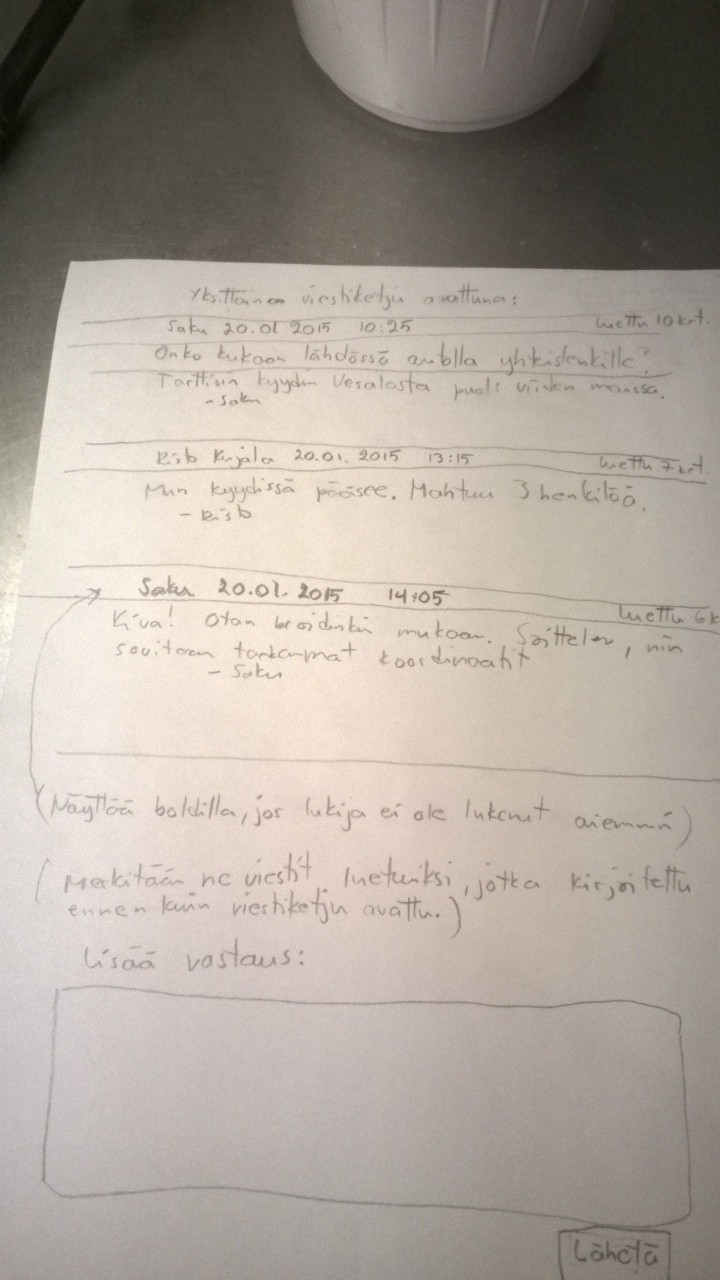 Yksittäinen viestiketju avattuna:
Saku 20.01 2015 10:25 luettu 10 krt.
Onko kukaan lähdössä autolla yhteislenkille?
Tarttisin kyydin Vesalasta puoli viiden maissa.
- Saku
Risto Kujala 20.01. 2015 13:15 luettu 7 krt
Mun kyydissä pääsee. Mahtuu 3 henkilöä.
- Risto
Saku 20.01. 2015 14:05
luettu 6 k
Kiva! Otan broidinkin mukaan. Soittelen, niin
sovitaan tarkemmat koordinaatit
- Saku
(Näyttöä boldilla, jos lukija ei ole lukenut aiemmin)
(Merkitään ne viestit luetuiksi, jotka kirjoitettu
ennen kuin viestiketju avattu.)
Lisää vastaus:
Lähetä